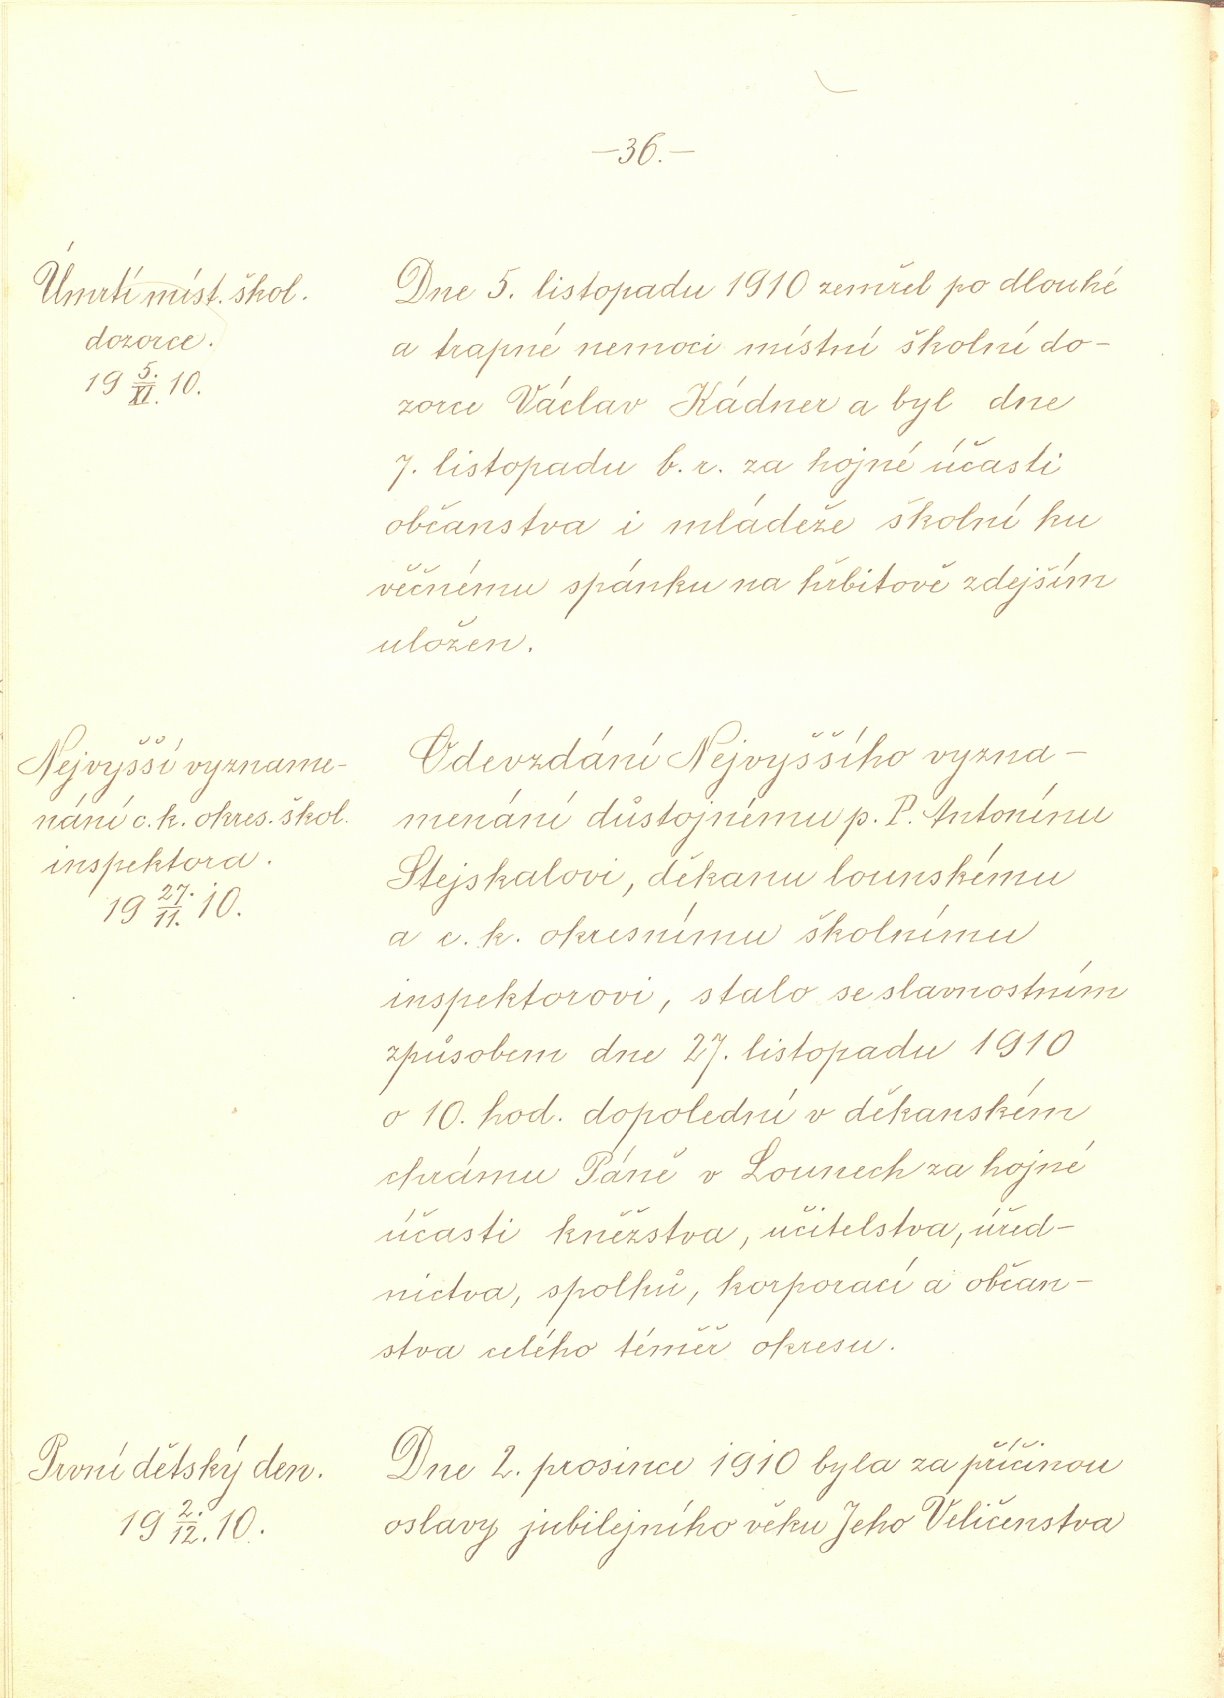 —36.—
Úmrtí míst. škol.
dozorce.
19 5./XI. 10.
Dne 5. listopadu 1910 zemřel po dlouhé
a trapné nemoci místní školní do-
zorce Václav Kádner a byl dne
7. listopadu b. r. za hojné účasti
občanstva i mládeže školní ku
věčnému spánku na hřbitově zdejším
uložen.
Nejvyšší vyzname-
nání c. k. okres. škol.
inspektora.
19 27./11. 10.
Odevzdání Nejvyššího vyzna-
menání důstojnému p. P. Antonínu
Stejskalovi, děkanu lounskému
a c. k. okresnímu školnímu
inspektorovi, stalo se slavnostním
způsobem dne 27. listopadu 1910
o 10. hod. dopolední v děkanském
chrámu Páně v Lounech za hojné
účasti kněžstva, učitelstva, úřed-
nictva, spolků, korporací a občan-
stva celého téměř okresu.
První dětský den.
19 2./12. 10.
Dne 2. prosince 1910 byla za příčinou
oslavy jubilejního věku Jeho Veličenstva